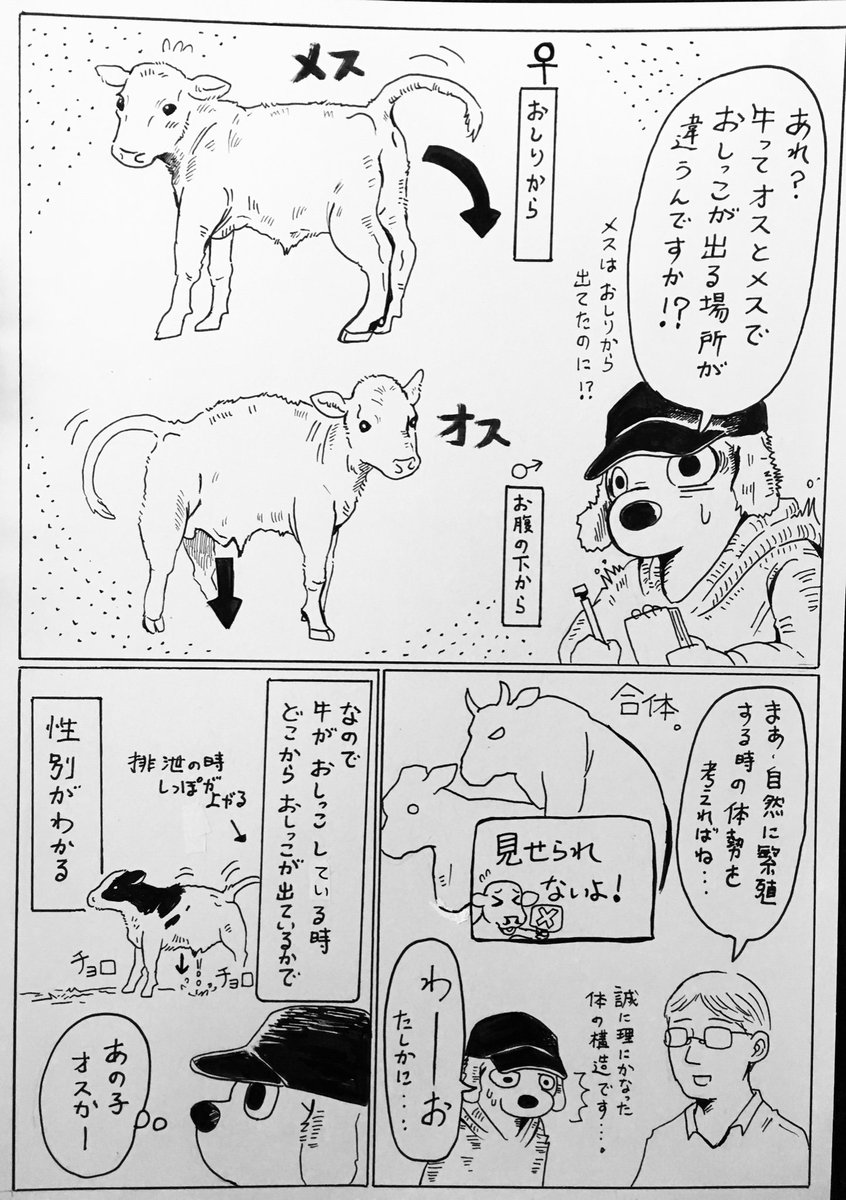 あれ？
牛ってオスとメスで
おしっこが出る場所が
違うんですか!?
メスは おしりから
出てたのに!?
♀
おしりから
メス
オス
♂
お腹の下から
まあ、自然に繁殖
する時の体勢を
考えればね…
合体。
見せられ
ないよ！
誠に理にかなった
体の構造です…。
わーーお
たしかに…。
なので
牛が おしっこ している時
どこから おしっこが 出ているかで
性別がわかる
排泄の時
しっぽが
上がる
チョロ
チョロ
あの子
オスかー